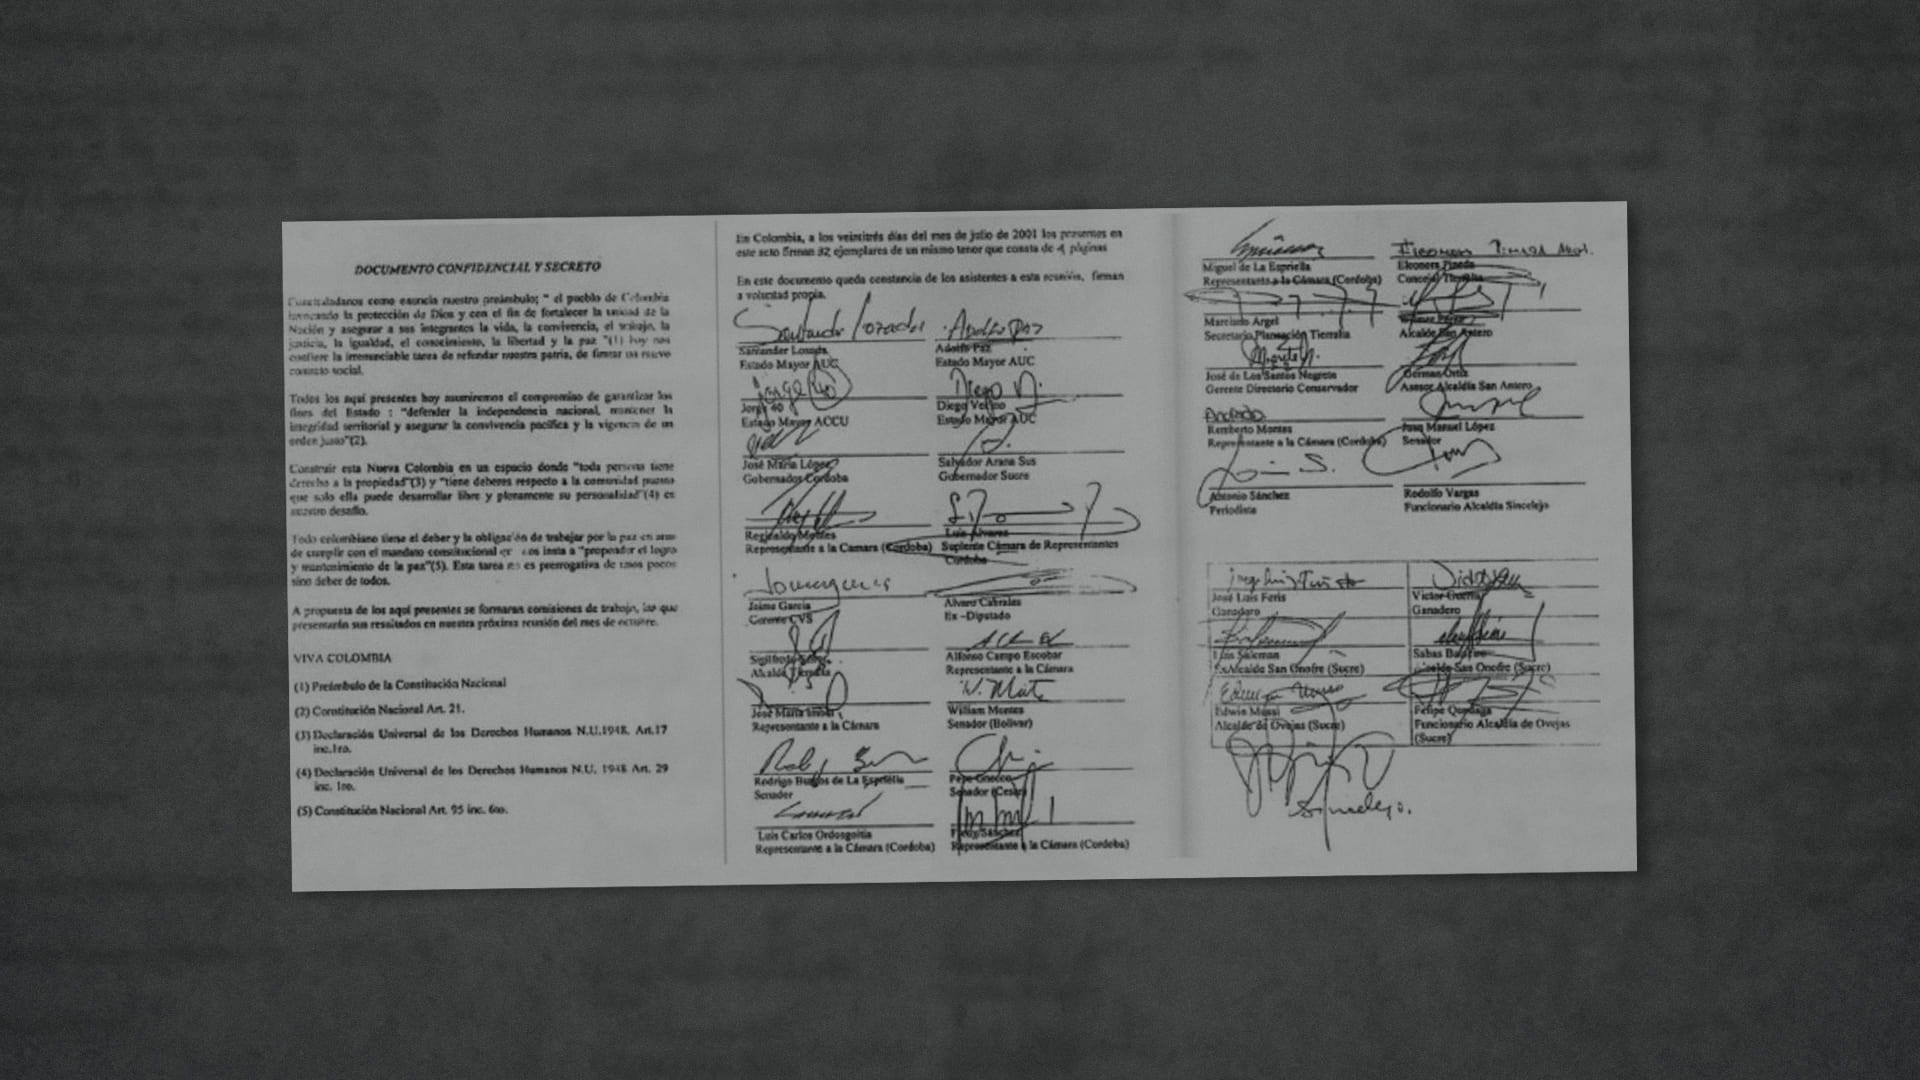 DOCUMENTO CONFIDENCIAL Y SECRETO
como esencia nuestro preámbulo; " el pueblo de Colombia
invocando la protección de Dios y con el fin de fortalecer la unidad de la
Nación y asegurar a sus integrantes la vida, la convivencia, el trabajo, la
justicia, la igualdad, el conocimiento, la libertad y la paz "(1) hoy nos
confiere la irrenunciable tarea de refundar nuestra patria, de firmar un nuevo
contrato social.
Todos los aquí presentes hoy asumiremos el compromiso de garantizar los
fines del Estado : "defender la independencia nacional, mantener la
integridad territorial y asegurar la convivencia pacífica y la vigencia de un
orden justo"(2).
Construir esta Nueva Colombia en un espacio donde "toda persona tiene
derecho a la propiedad"(3) y "tiene deberes respecto a la comunidad puesto
que solo ella puede desarrollar libre y plenamente su personalidad"(4) es
nuestro desafío.
Todo colombiano tiene el deber y la obligación de trabajar por la paz en aras
de cumplir con el mandato constitucional que nos insta a "propender el logro
y mantenimiento de la paz"(5). Esta tarea no es prerrogativa de unos pocos
sino deber de todos.
A propuesta de los aquí presentes se formaran comisiones de trabajo, las que
presentarán sus resultados en nuestra próxima reunión del mes de octubre.
VIVA COLOMBIA
(1) Preámbulo de la Constitución Nacional
(2) Constitución Nacional Art. 21.
(3) Declaración Universal de los Derechos Humanos N.U.1948. Art.17
inc.1ro.
(4) Declaración Universal de los Derechos Humanos N.U. 1948 Art. 29
inc. 1ro.
(5) Constitución Nacional Art. 95 inc. 6to.
En Colombia, a los veintitrés días del mes de julio de 2001 los presentes en
este acto firman 32 ejemplares de un mismo tenor que consta de 4 páginas
En este documento queda constancia de los asistentes a esta reunión, firman
a voluntad propia.
Santander Lozada Adolfo Paz
Santander Lozada Adolfo Paz
Estado Mayor AUC Estado Mayor AUC
Jorge 40 Diego V.
Jorge 40 Diego Vecino
Estado Mayor ACCU Estado Mayor AUC
José María López Salvador Arana Sus
Gobernador Cordoba Gobernador Sucre
Reginaldo Montes Luis Álvarez
Representante a la Camara (Cordoba) Suplente Cámara de Representantes
Cordoba
Jaime García Alvaro Cabrales
Gerente CVS Ex -Diputado
Alfonso Campo Escobar
Alcalde Tierralta Representante a la Cámara
W. Montes
José María William Montes
Representante a la Cámara Senador (Bolívar)
Rodrigo Burgos de La Espriella Pepe Gnecco
Senador Senador (Cesar)
Luis Carlos Ordosgoitia Fredy Sánchez
Representante a la Cámara (Cordoba) Representante a la Cámara (Cordoba)
Eleonora Pineda
Miguel de La Espriella Eleonora Pineda
Representante a la Cámara (Cordoba) Concejal Tierralta
Marciado Argel
Secretario Planeación Tierralta Alcalde San Antero
José de Los Santos Negrete German Ortiz
Gerente Directorio Conservador Asesor Alcaldía San Antero
Remberto Montes Juan Manuel López
Representante a la Cámara (Cordoba) Senador
Antonio Sánchez Rodolfo Vargas
Periodista Funcionario Alcaldía Sincelejo
José Luis Feris Victor Guerra
Ganadero Ganadero
Luis Saleman Sabas
ExAlcalde San Onofre (Sucre) Alcalde San Onofre (Sucre)
Edwin Mussi Felipe
Alcalde de Ovejas (Sucre) Funcionario Alcaldía de Ovejas
(Sucre)
Sincelejo.